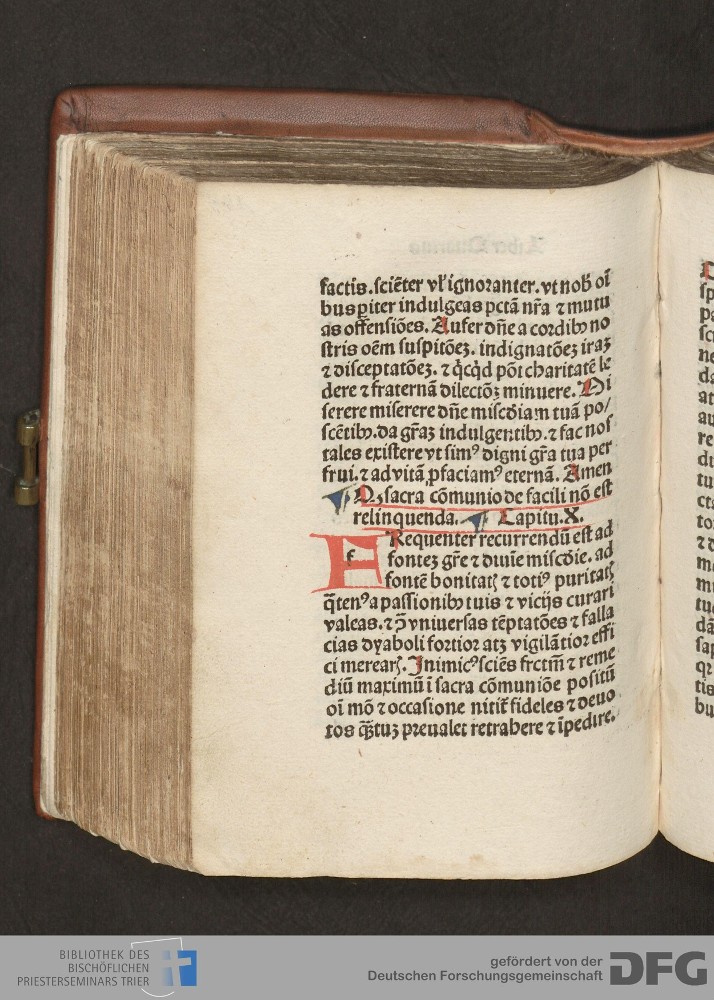 factis.sciēter vl' ignoranter.vt nob̄ oī
bus ꝑiter indulgeas pctā nr̄a ⁊ mutu
as offensiōes. Aufer dn̄e a cordibꝰ no
stris oēm suspitōeꝫ. indignatōeꝫ iraꝫ
⁊ disceptatōeꝫ. ⁊ q̇cq̇d pōt charitatē le
dere ⁊ fraternā dilectōꝫ minuere. Mi
serere miserere dn̄e misc̄diam tuā po/
scētibꝰ. da gr̄aꝫ indulgentibꝰ. ⁊ fac nos
tales existere vt simꝰ digni gr̄a tua per
frui. ⁊ ad vitā ꝓfaciamꝰ eternā. Amen
¶ Qꝫ sacra cōmunio de facili nō est
relinquenda. ¶ Capitu. X.
FRequenter recurrendū est ad
fonteꝫ gr̄e ⁊ diuīe misc̄die. ad
fontē bonitatꝭ ⁊ totiꝰ puritatꝭ
q̄tenꝰ a passionibꝰ tuis ⁊ vicijs curari
valeas. ⁊ ꝯ vniuersas tēptatōes ⁊ falla
cias dyaboli fortior atꝫ vigilātior effi
ci merearꝭ. Inimicꝰ sciēs frctm̄ ⁊ reme
diū maximū ī sacra cōmuniōe positū
oī mō ⁊ occasione nitit᷑ fideles ⁊ deuo
tos qȝtuꝫ preualet retrahere ⁊ īpedire.
BIBLIOTHEK DES
BISCHÖFLICHEN
PRIESTERSEMINARS TRIER
gefördert von der
Deutschen Forschungsgemeinschaft
DFG